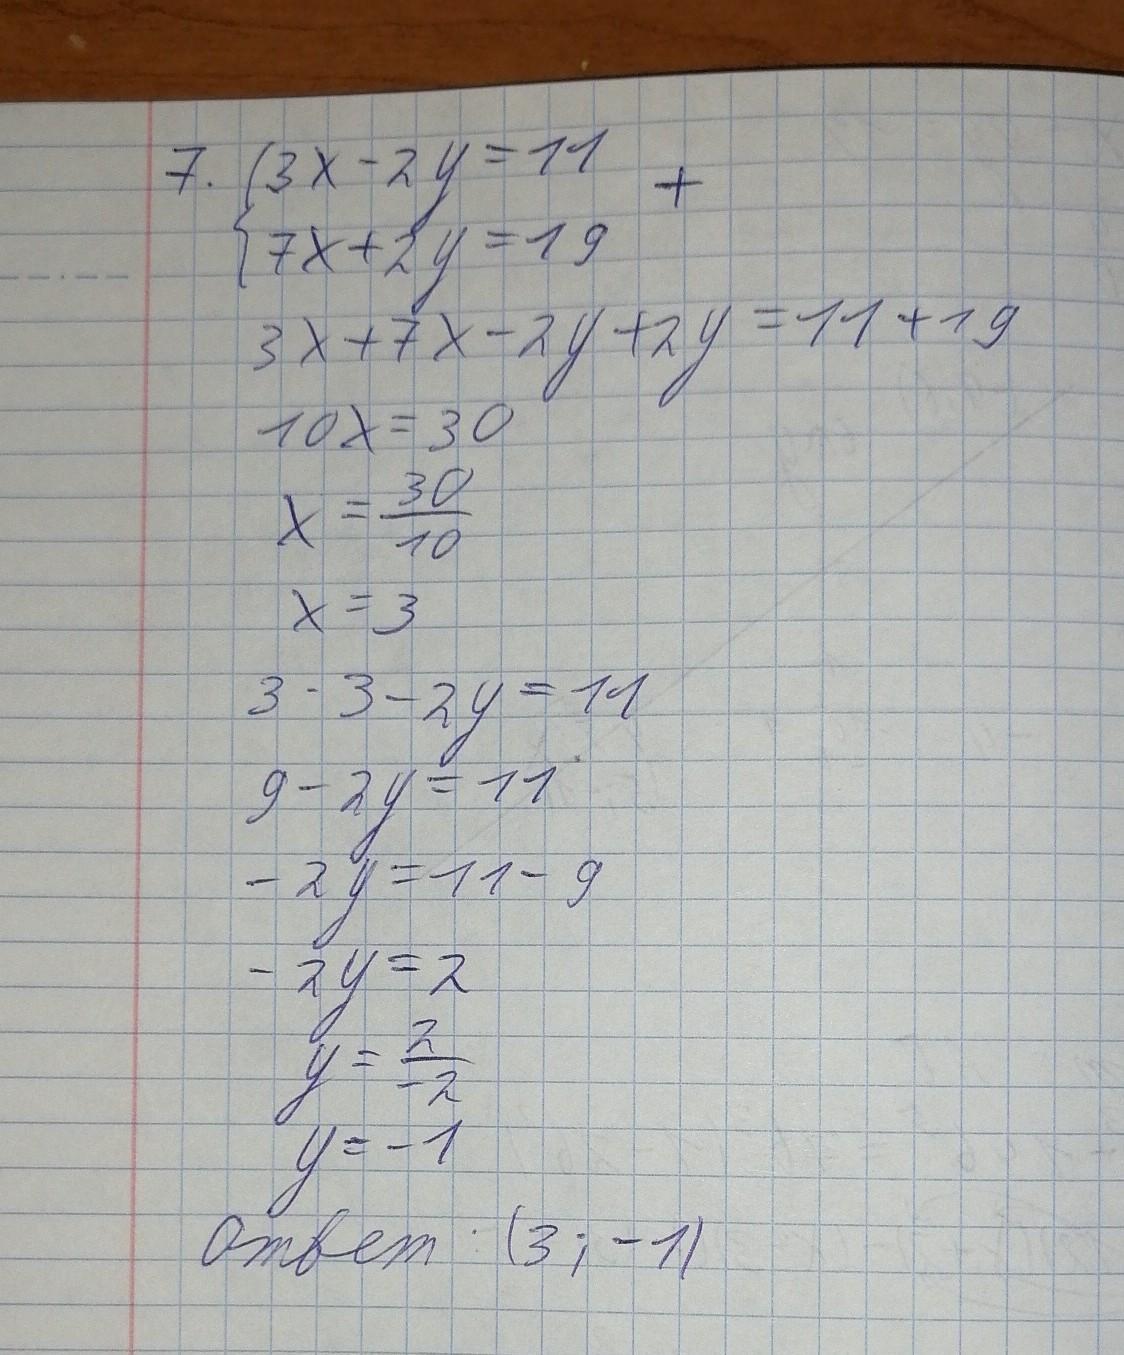 7. {3x-2y=11 +
{7x+2y=19
3x+7x-2y+2y=11+19
10x=30
x=30/10
x=3
3·3-2y=11
9-2y=11
-2y=11-9
-2y=2
y=2/-2
y=-1
Ответ: (3;-1)